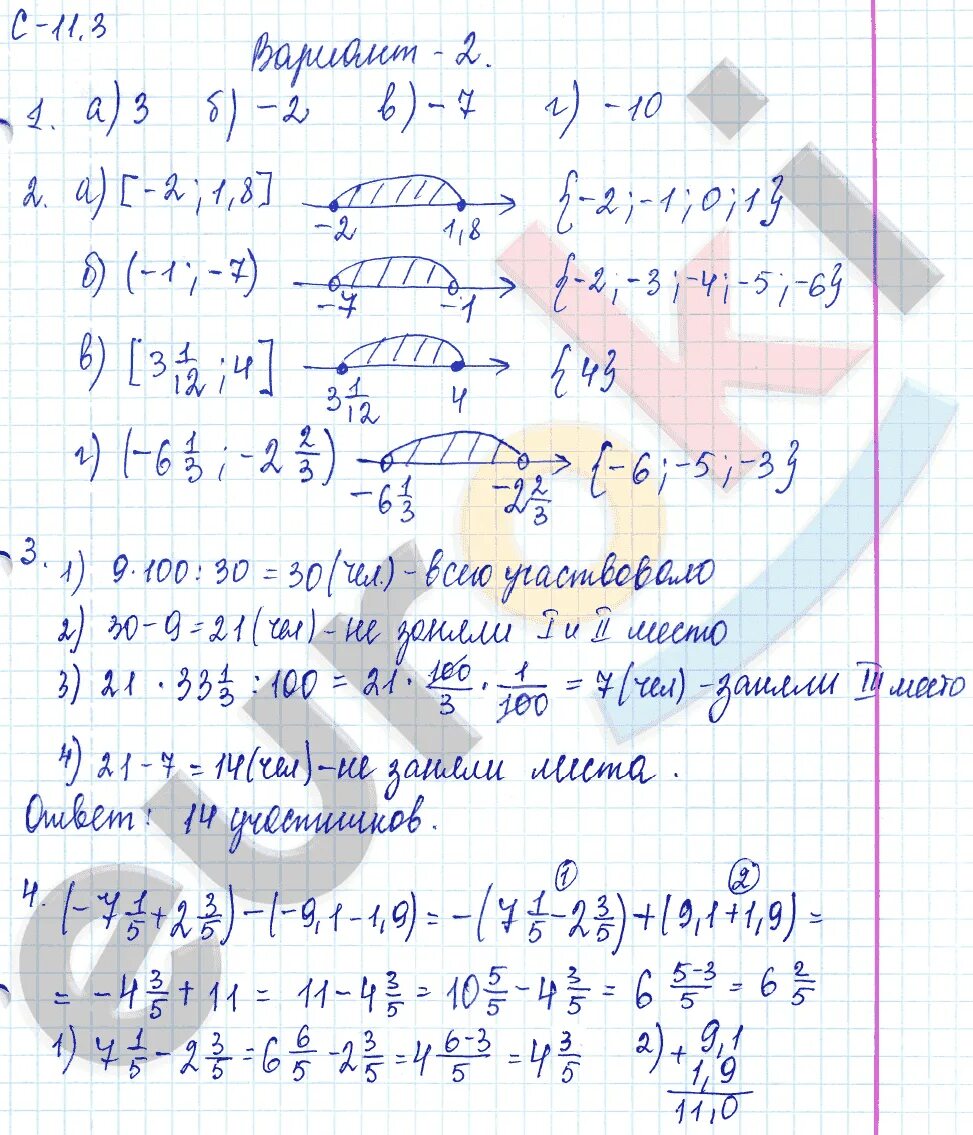 С-11.3
Вариант - 2.
1. а) 3 б) -2 в) -7 г) -10
2. а) [-2 ; 1,8] -2 1,8 {-2 ; -1 ; 0 ; 1}
б) (-1 ; -7) -7 -1 {-2 ; -3 ; -4 ; -5 ; -6}
в) [3 1/12 ; 4] 3 1/12 4 {4}
г) (-6 1/3 ; -2 2/3) -6 1/3 -2 2/3 {-6 ; -5 ; -3}
3. 1) 9·100 : 30 = 30 (чел.) - всего участвовало
2) 30 - 9 = 21 (чел) - не заняли I и II место
3) 21 · 33 1/3 : 100 = 21 · 100/3 · 1/100 = 7 (чел) - заняли III место
4) 21 - 7 = 14 (чел) - не заняли места .
Ответ: 14 участников.
4. (-7 1/5 + 2 3/5) - (-9,1 - 1,9) = -(7 1/5 - 2 3/5) + (9,1 + 1,9) =
① ②
= -4 3/5 + 11 = 11 - 4 3/5 = 10 5/5 - 4 3/5 = 6 5-3/5 = 6 2/5
1) 7 1/5 - 2 3/5 = 6 6/5 - 2 3/5 = 4 6-3/5 = 4 3/5 2) + 9,1
1,9
11,0
euroki